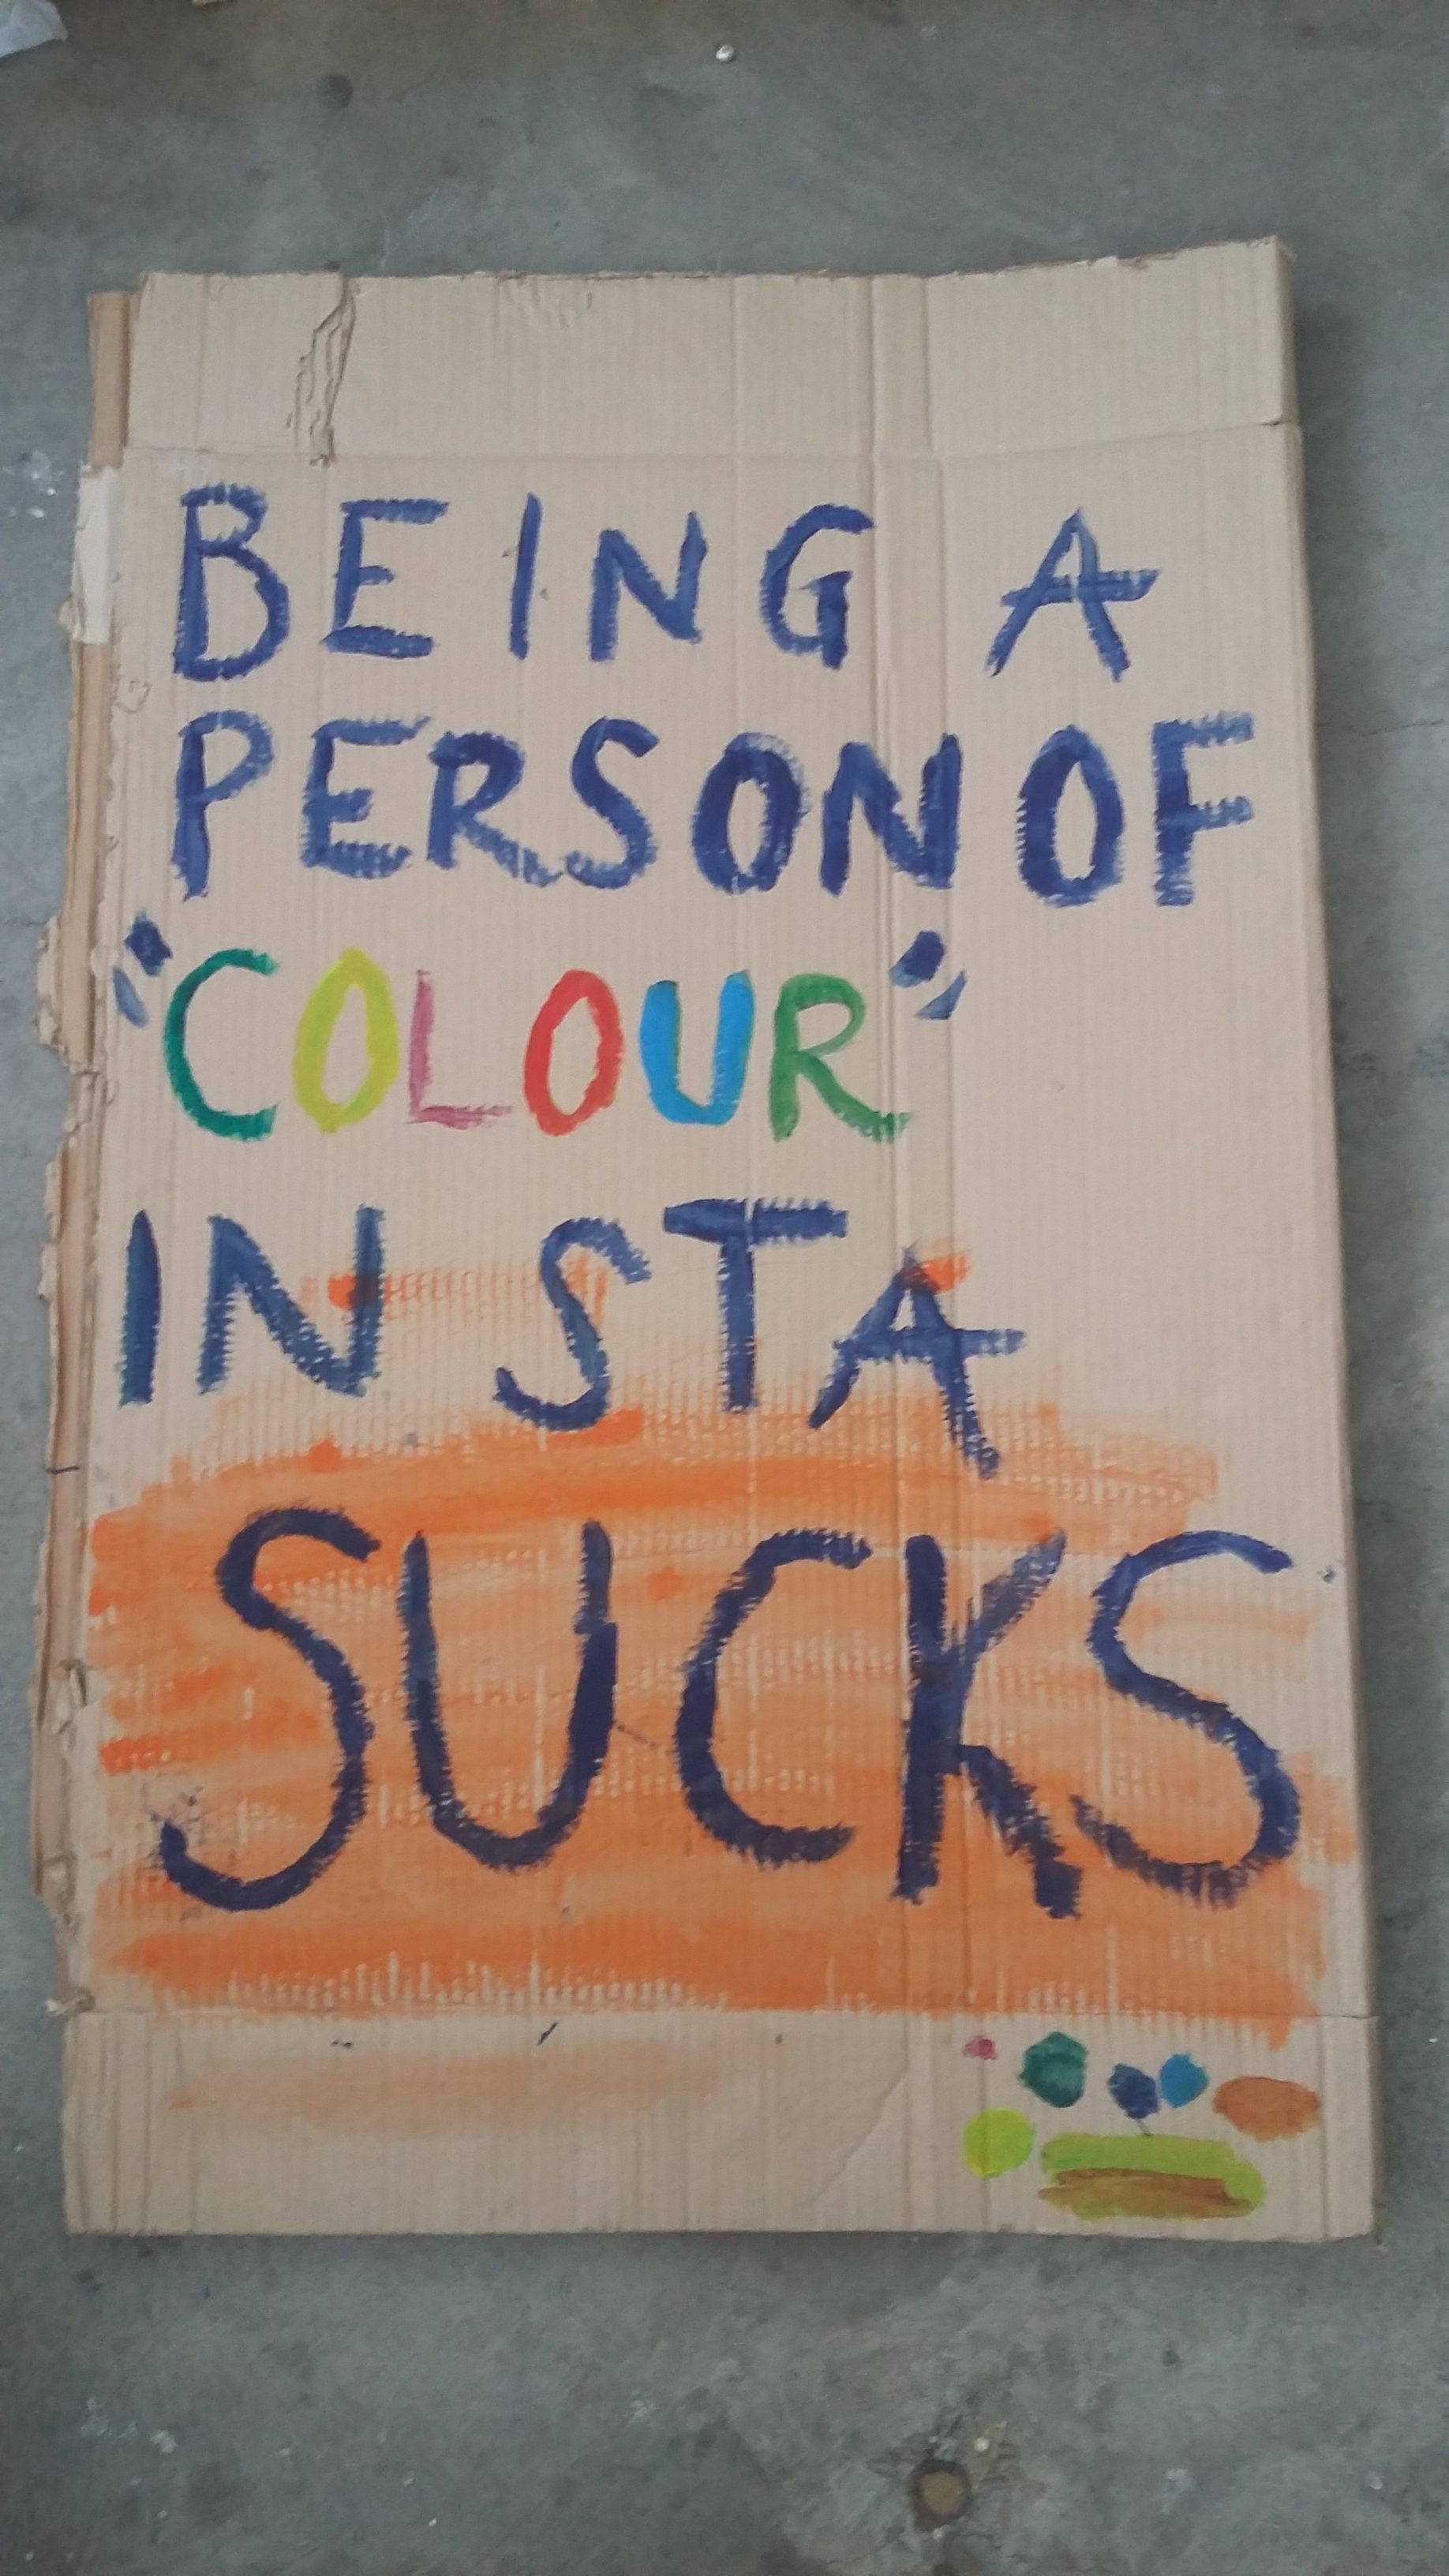 BEING A
PERSON OF
"COLOUR"
IN STA
SUCKS